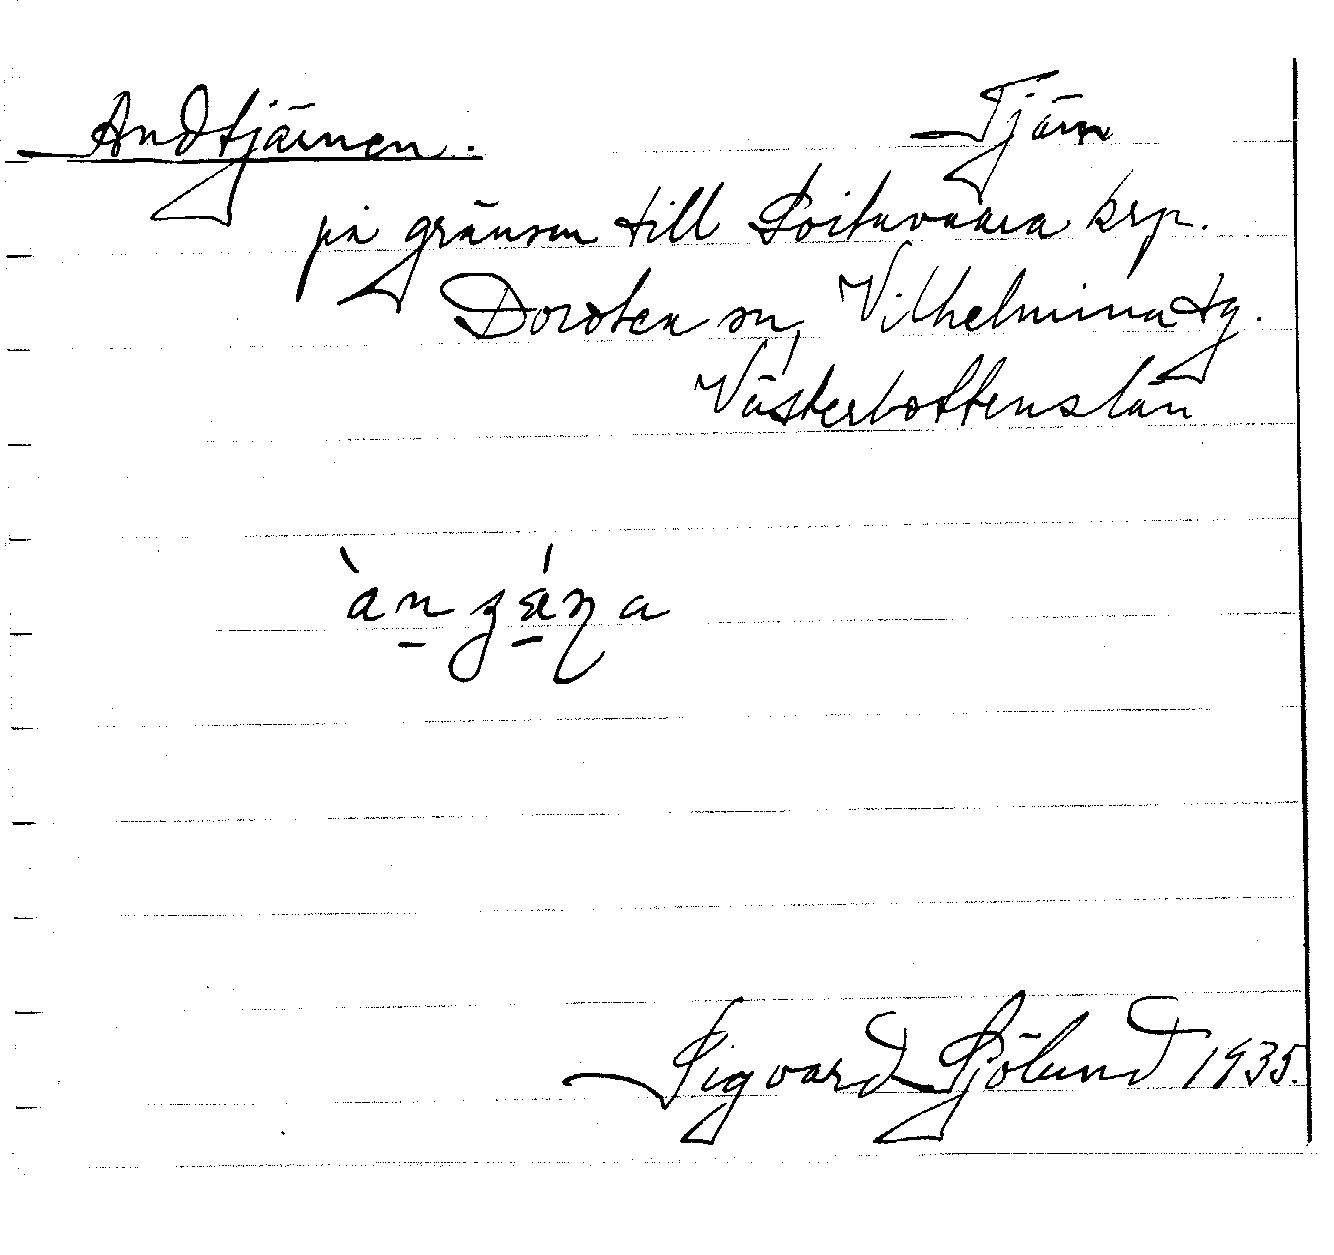 Andtjärnen. Tjärn
på gränsen till Loitavaara krp.
Dorotea sn, Vilhelmina tg.
Västerbottens län
Sigvard Sjölund 1935.